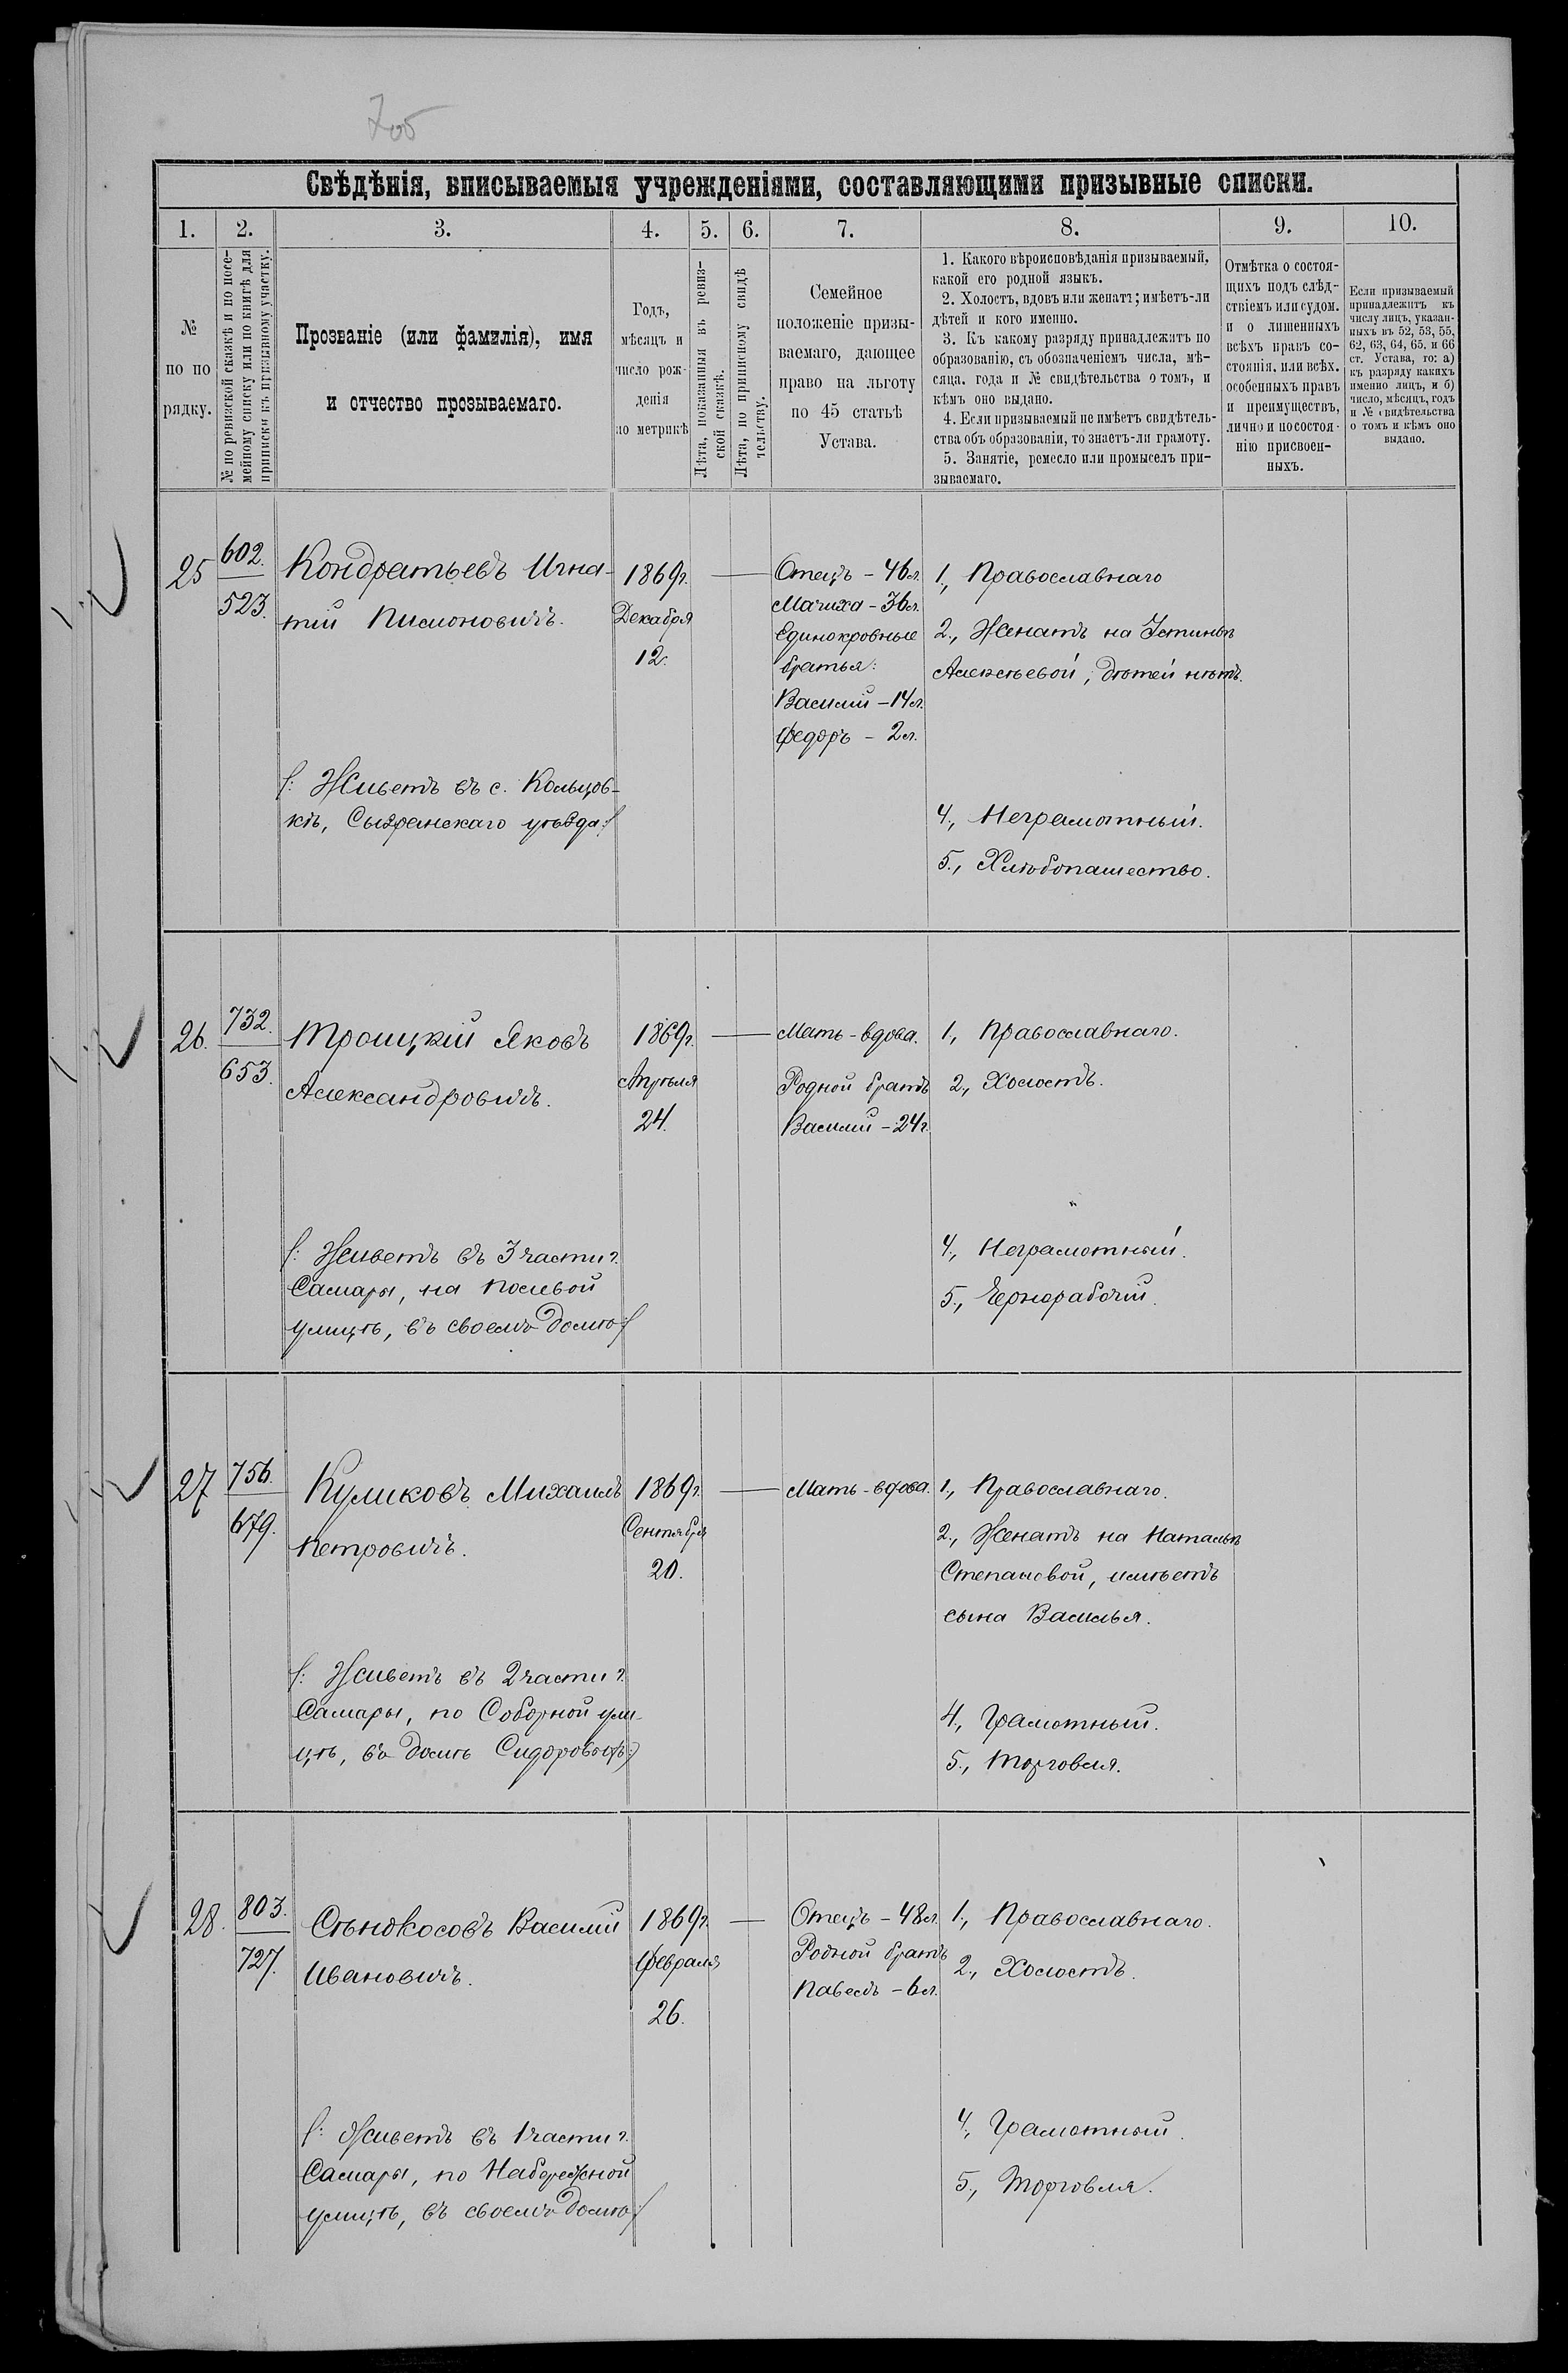 Свѣдѣнія, вписываемыя учрежденіями, составляющими призывные списки.
1. 2. 3. 4. 5. 6. 7. 8. 9. 10.
№
по по
рядку.
№ по ревизской сказкѣ и по посе-
мейному списку или по книгѣ для
приписки къ призывному участку.
Прозваніе (или фамилія), имя
и отчество прозываемаго.
Годъ,
мѣсяцъ и
число рож-
денія
по метрикѣ
Лѣта, показанныя въ ревиз-
ской сказкѣ.
Лѣта, по приписному свидѣ
тельству.
Семейное
положеніе призы-
ваемаго, дающее
право на льготу
по 45 статьѣ
Устава.
1. Какого вѣроисповѣданія призываемый,
какой его родной языкъ.
2. Холостъ, вдовъ или женатъ; имѣетъ-ли
дѣтей и кого именно.
3. Къ какому разряду принадлежитъ по
образованію, съ обозначеніемъ числа, мѣ-
сяца, года и № свидѣтельства о томъ, и
кѣмъ оно выдано.
4. Если призываемый не имѣетъ свидѣтель-
ства объ образованіи, то знаетъ-ли грамоту.
5. Занятіе, ремесло или промыселъ при-
зываемаго.
Отмѣтка о состоя-
щихъ подъ слѣд-
ствіемъ или судом.
и о лишенныхъ
всѣхъ правъ со-
стоянія, или всѣх.
особенныхъ правъ
и преимуществъ,
лично и по состоя-
нію присвоен-
ныхъ.
Если призываемый
принадлежитъ къ
числу лицъ, указан-
ныхъ въ 52, 53, 55,
62, 63, 64, 65, и 66
ст. Устава, то: а)
къ разряду какихъ
именно лицъ, и б)
число, мѣсяцъ, годъ
и № свидѣтельства
о томъ и кѣмъ оно
выдано.
25
602.
523.
Кондратьевъ Игна-
тій Пимоновичъ.
/: Живетъ въ с. Кольцов-
кѣ, Сызранскаго уѣзда :/
1869г.
Декабря
12.
Отецъ – 46 л.
Мачиха – 36 л.
Единокровные
братья:
Василій – 14 л.
Федоръ – 2 л.
1., Православнаго
2., Женатъ на Устиньѣ
Алексѣевой, дѣтей нѣтъ.
4., Неграмотный.
5., Хлѣбопашество.
26.
732.
653.
Троицкій Яковъ
Александровичъ.
/: Живетъ въ 3 части г.
Самары, на Полевой
улицѣ, въ своемъ домѣ :/
1869г.
Апрѣля
24.
Мать – вдова.
Родной братъ
Василій – 24 г.
1., Православнаго.
2., Холостъ.
4., Неграмотный.
5., Чернорабочій.
27
756.
679.
Куликовъ Михаилъ
Петровичъ.
/: Живетъ въ 2 части г.
Самары, по Соборной ули-
цѣ, въ домѣ Сидоровыхъ :/
1869г.
Сентября
20.
Мать – вдова.
1., Православнаго.
2., Женатъ на Натальѣ
Степановой, имѣетъ
сына Василья.
4., Грамотный.
5., Торговля.
28.
803.
727.
Сѣнокосовъ Василій
Ивановичъ.
/: Живетъ въ 1 части г.
Самары, по Набережной
улицѣ, въ своемъ домѣ :/
1869г.
Февраля
26.
Отецъ – 48 л.
Родной братъ
Павелъ – 6 л.
1., Православнаго.
2., Холостъ.
4., Грамотный.
5., Торговля.